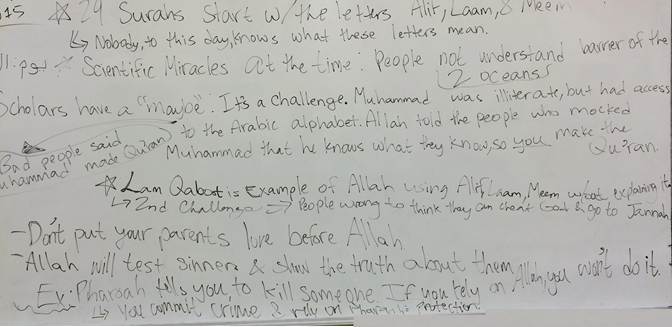 :15 ☆ 29 Surahs Start w/ the letters Alif, Laam, & Meem
↳ Nobody, to this day, knows what these letters mean.
☆ Scientific Miracles at the time: People not understand barrier of the
2 oceans
Scholars have a "maybe". It's a challenge. Muhammad was illiterate, but had access
Bad people said Muhammad made Qu'ran
to the Arabic alphabet. Allah told the people who mocked
Muhammad that he knows what they know, so you make the
Qu'ran.
☆ Lam is Example of Allah using Alif, Laam, Meem explaining it
↳ 2nd Challenge → People wrong to think they can cheat God & go to Jannah
- Don't put your parents love before Allah.
- Allah will test sinners & show the truth about them
Ex: Pharoah tells you, to kill someone. If you rely on Allah, you won't do it.
↳ You commit crime & rely on protection.